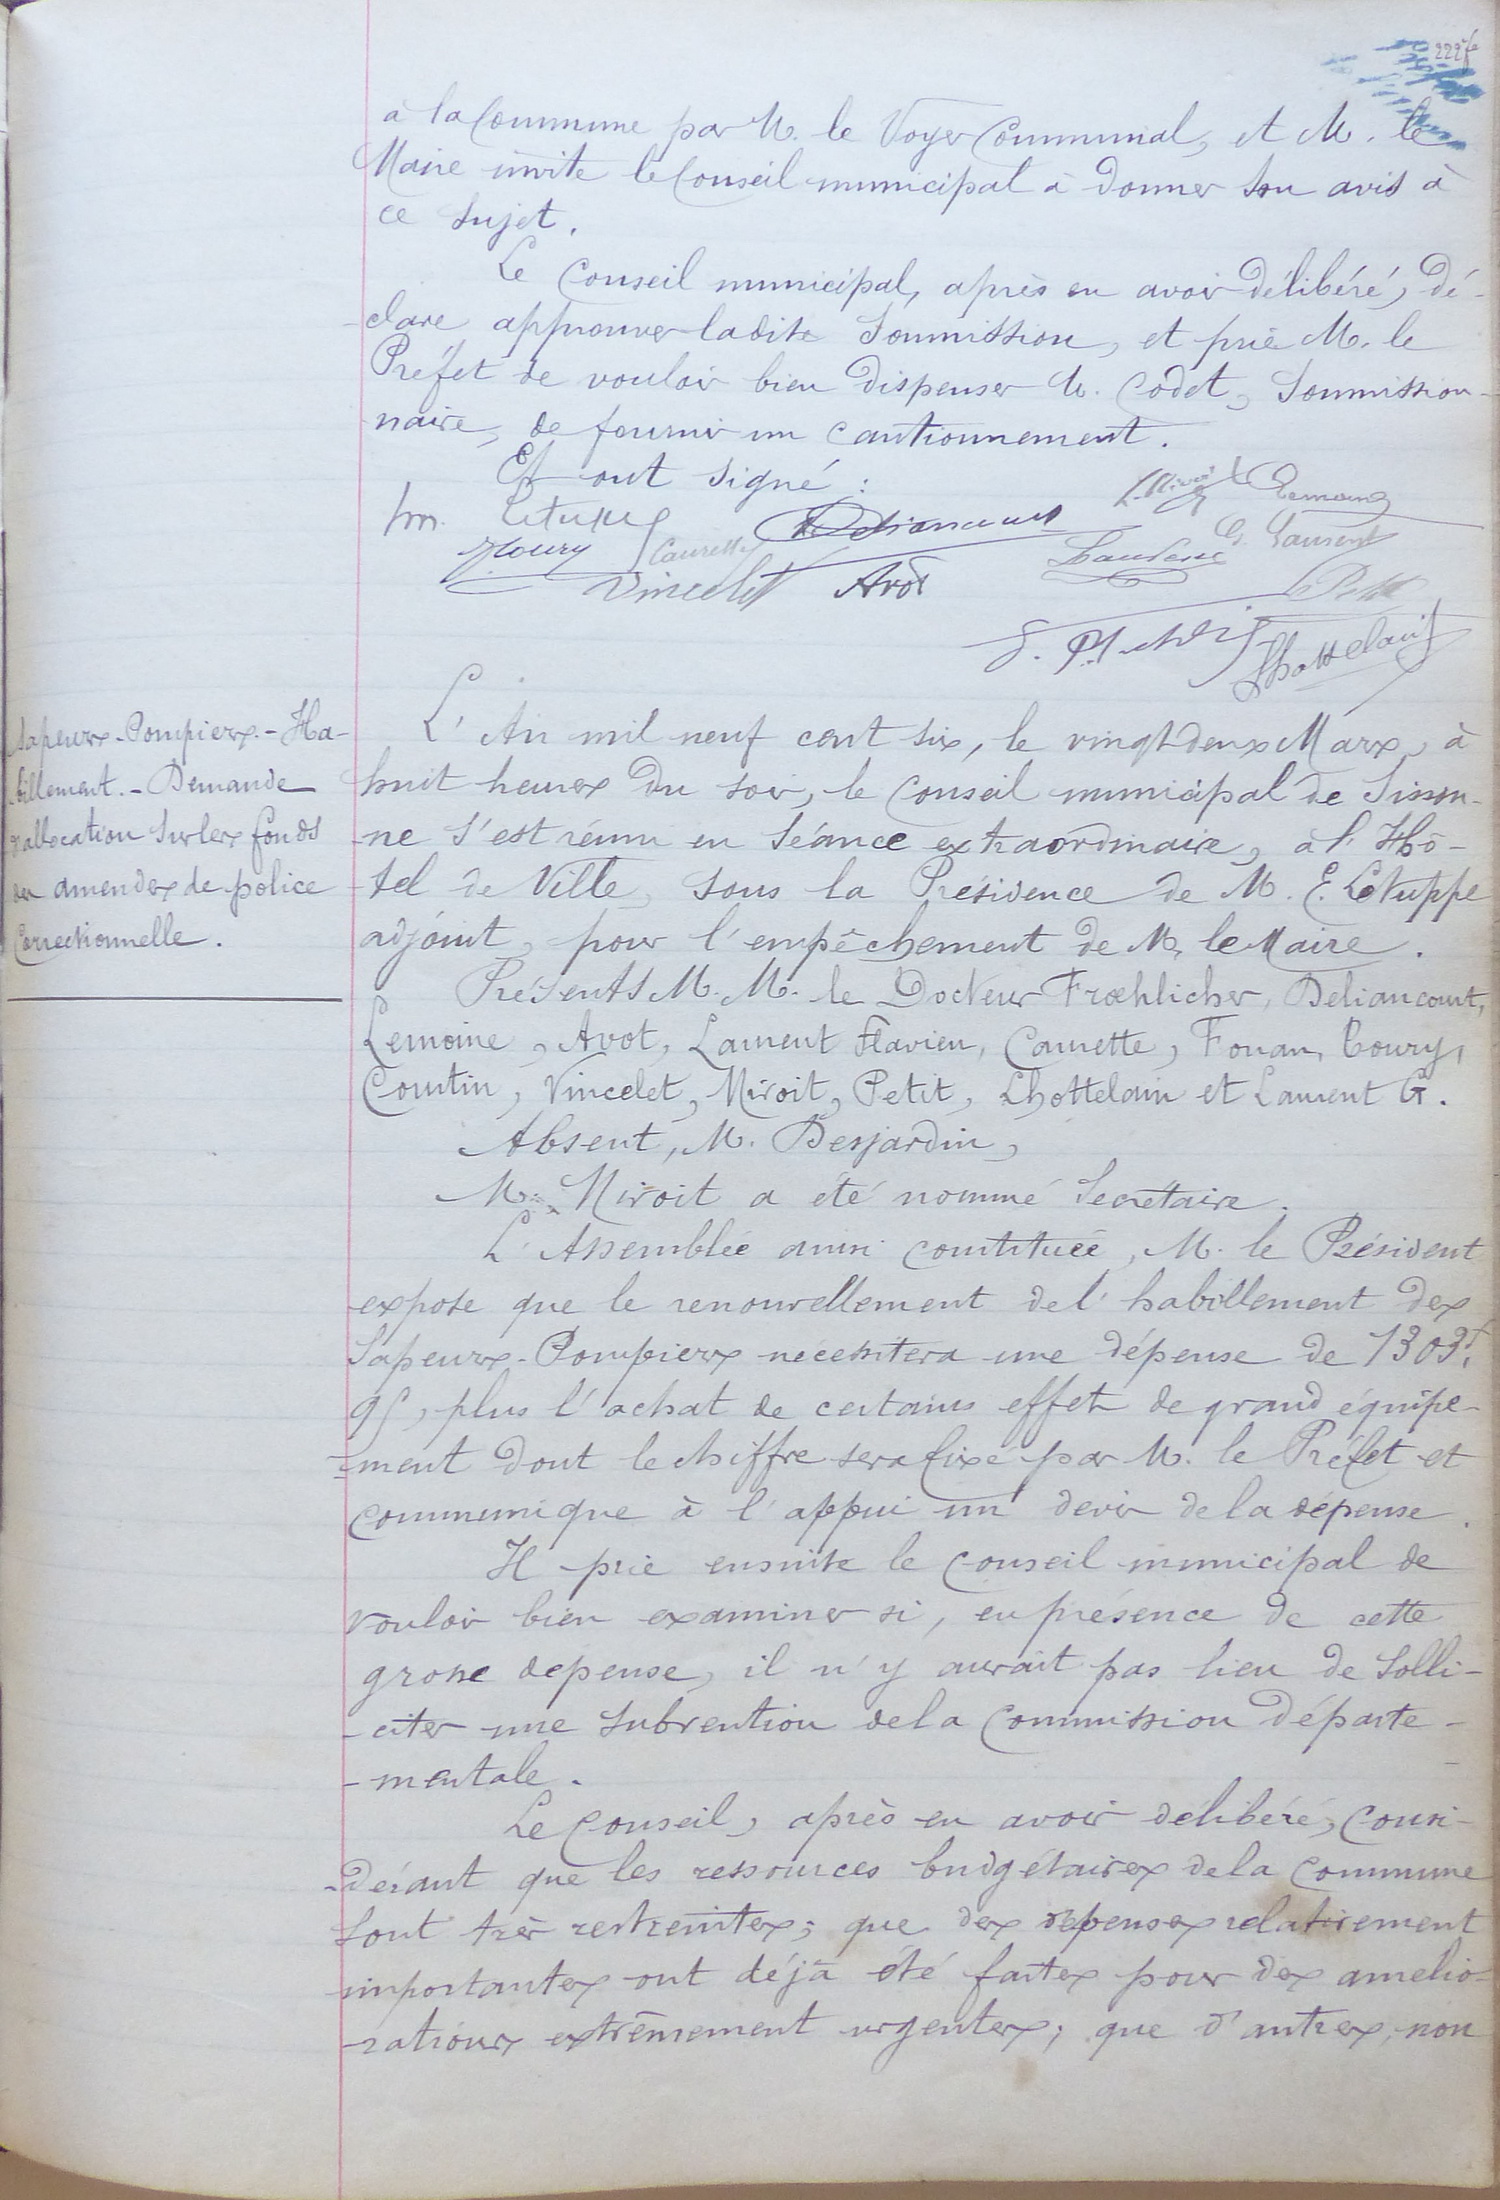 à la Commune par M. le Voyer Communal, et M. le
Maire invite le Conseil municipal à donner son avis à
ce sujet.
Le Conseil municipal, après en avoir délibéré, dé-
clare approuver ladite Soumission, et prie M. le
Préfet de vouloir bien dispenser M. Codet, Soumission-
naire, de fournir un cautionnement.
Et ont signé :
Letuppe
Deliancourt
Lemoine
Caurette
G. Laurent
Vincelet
Avot
Petit
Lhottelain
Sapeurs-Pompiers.- Ha-
billement.- Demande
d'allocation sur les fonds
des amendes de police
Correctionnelle.
L'An mil neuf cent six, le vingt deux Mars, à
huit heures du soir, le Conseil municipal de Sisson-
ne s'est réuni en Séance extraordinaire, à l'Hô-
tel de Ville, sous la Présidence de M. E. Letuppe
adjoint, pour l'empêchement de M. le Maire.
Présents M. M. le Docteur Frœhlicher, Deliancourt,
Lemoine, Avot, Laurent Flavien, Caurette, Fouan, Coury,
Courtin, Vincelet, Miroit, Petit, Lhottelain et Laurent G.
Absent, M. Desjardin,
M. Miroit a été nommé Secrétaire.
L'Assemblée ainsi constituée, M. le Président
expose que le renouvellement de l'habillement des
Sapeurs-Pompiers nécessitera une dépense de 1303f,
95, plus l'achat de certains effets de grand équipe-
ment dont le chiffre sera fixé par M. le Préfet et
communiqué à l'appui un devis de la dépense.
Il prie ensuite le Conseil municipal de
vouloir bien examiner si, en présence de cette
grosse dépense, il n'y aurait pas lieu de Solli-
-citer une Subvention de la Commission départe-
-mentale.
Le Conseil, après en avoir délibéré, Consi-
-dérant que les ressources budgétaires de la Commune
sont très restreintes; que des dépenses relativement
importantes ont déjà été faites pour des amélio-
-rations extrêmement urgentes; que d'autres, non